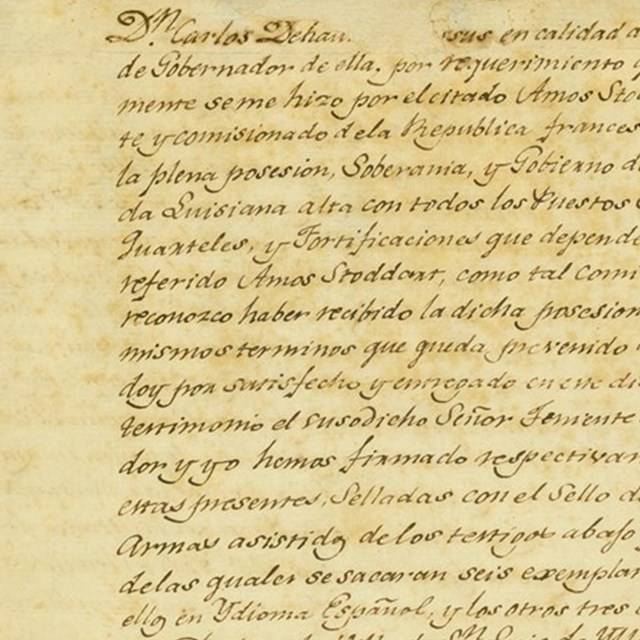 Dⁿ. Carlos Dehau sus en calidad
de Gobernador de ella, por requerimiento
mente se me hizo por el citado Amos Sto
te y comisionado dela Republica frances
la plena posesion, Soberania, y Gobierno d
da Luisiana alta con todos los Puestos
Quarteles, y Fortificaciones que depende
referido Amos Stoddart, como tal Comi
reconozco haber recibido la dicha posesion
mismos terminos que queda prevenido
doy por satisfecho y entregado en este di
testimonio el susodicho Señor Teniente
dor y yo hemos firmado respectivam
estas presentes, Selladas con el Sello d
Armas asistidos delos testigos abajo
delas quales se sacaran seis exemplar
ellos en Ydioma Español, y los otros tres